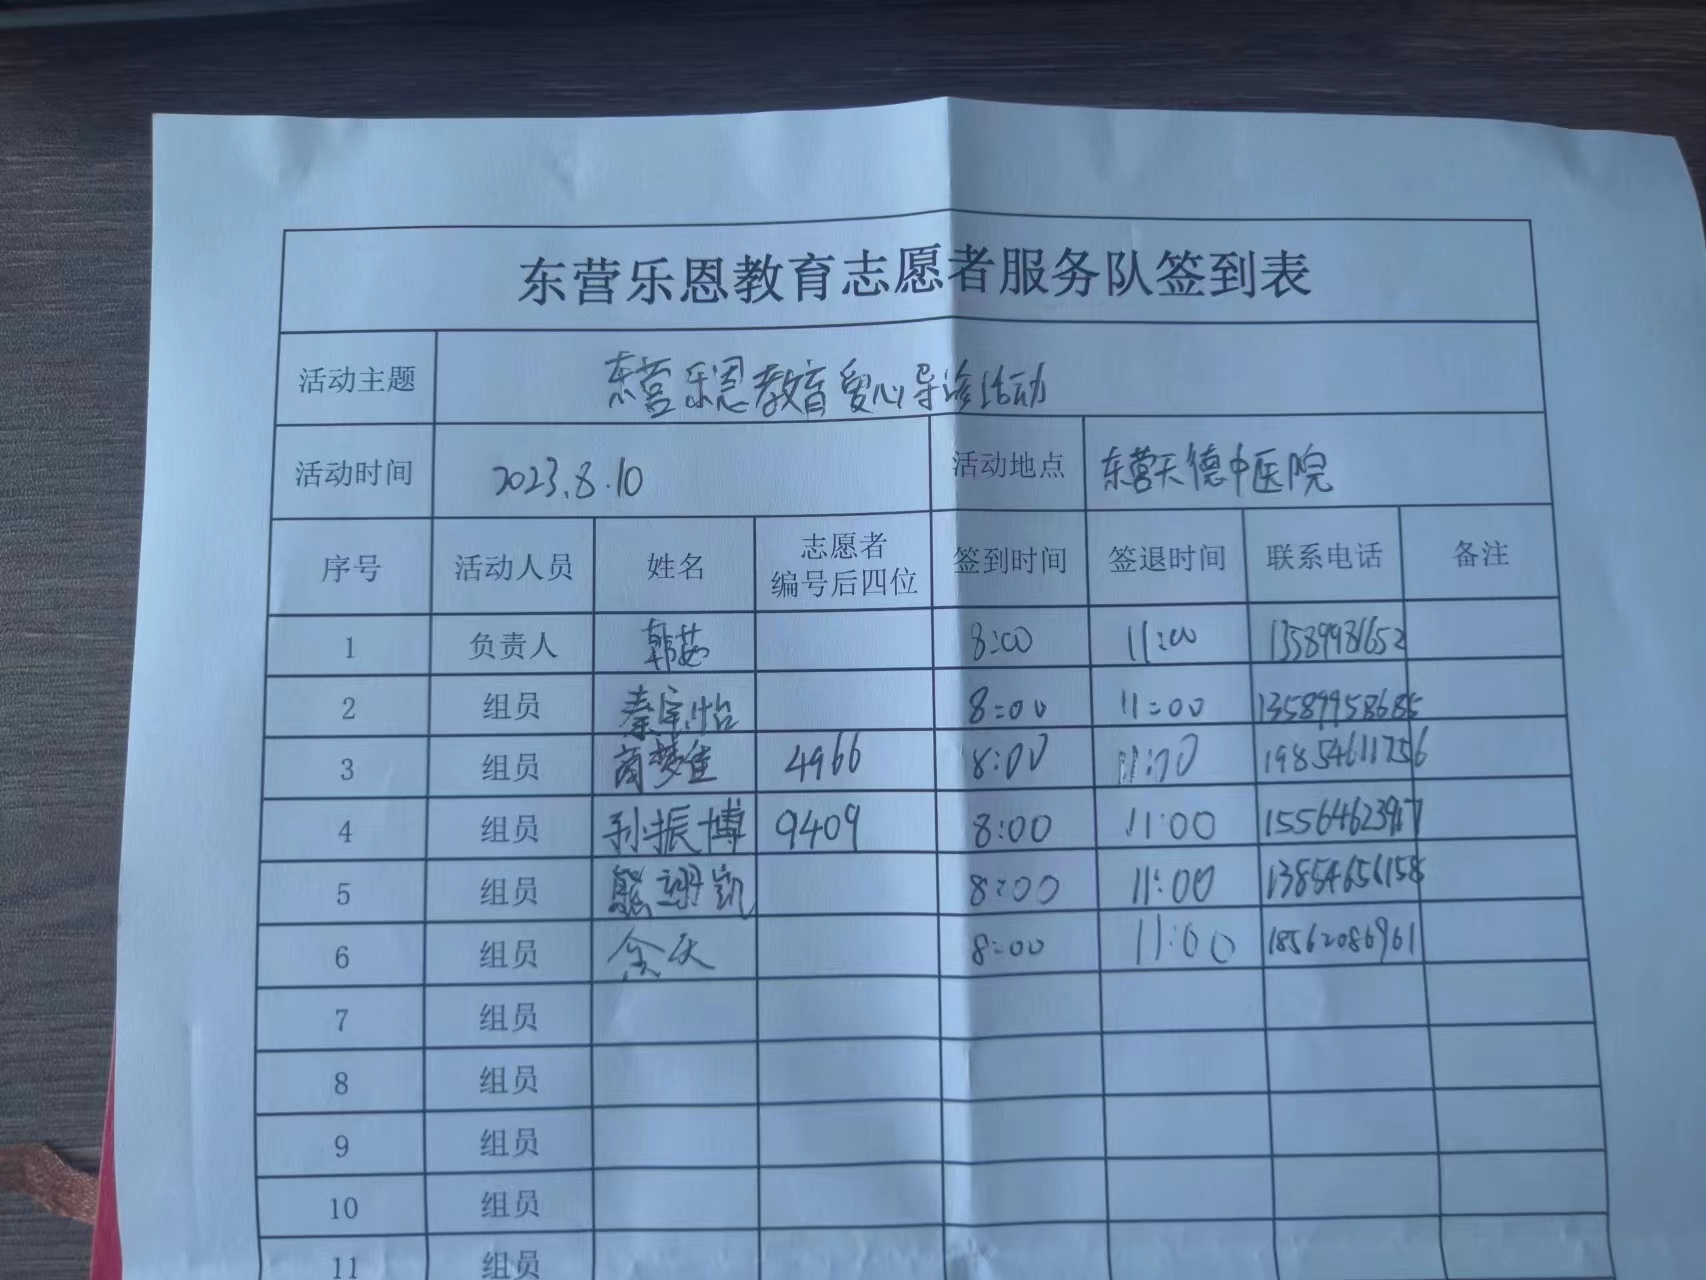 东营乐恩教育志愿者服务队签到表
活动主题 东营乐恩教育爱心导诊活动
活动时间 2023.8.10 活动地点 东营天德中医院
序号 活动人员 姓名 志愿者编号后四位 签到时间 签退时间 联系电话 备注
1 负责人 韩茹 8:00 11:00 13589981652
2 组员 秦宇怡 8:00 11:00 13589958685
3 组员 商梦佳 4966 8:00 11:00 19854611756
4 组员 孙振博 9409 8:00 11:00
5 组员 熊翊凯 8:00 11:00 13854656158
6 组员 8:00 11:00 18562086961
7 组员
8 组员
9 组员
10 组员
11 组员